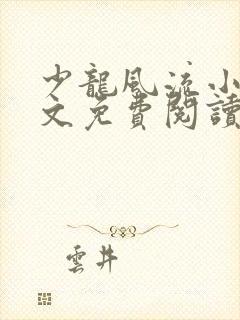 少龍風流小
文免費閱讀
雲井